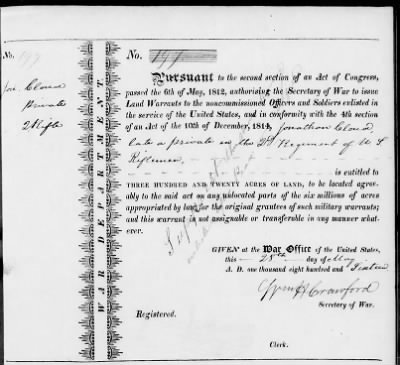 No. 197
No. 197
Jon. Cloud
Private
2d Rifle
WAR DEPARTMENT.
Pursuant to the second section of an Act of Congress,
passed the 6th of May, 1812, authorising the Secretary of War to issue
Land Warrants to the noncommissioned Officers and Soldiers enlisted in
the service of the United States, and in conformity with the 4th section
of an Act of the 10th of December, 1814, Jonathan Cloud
late a private in the 2d Regiment of U S
Riflemen
is entitled to
THREE HUNDRED AND TWENTY ACRES OF LAND, to be located agreeably
to the said act on any unlocated parts of the six millions of acres
appropriated by law for the original grantees of such military warrants;
and this warrant is not assignable or transferable in any manner what-
ever.
GIVEN at the War Office of the United States,
this 28th day of May
A. D. one thousand eight hundred and Sixteen
Wm H Crawford
Secretary of War.
Registered.
Clerk.